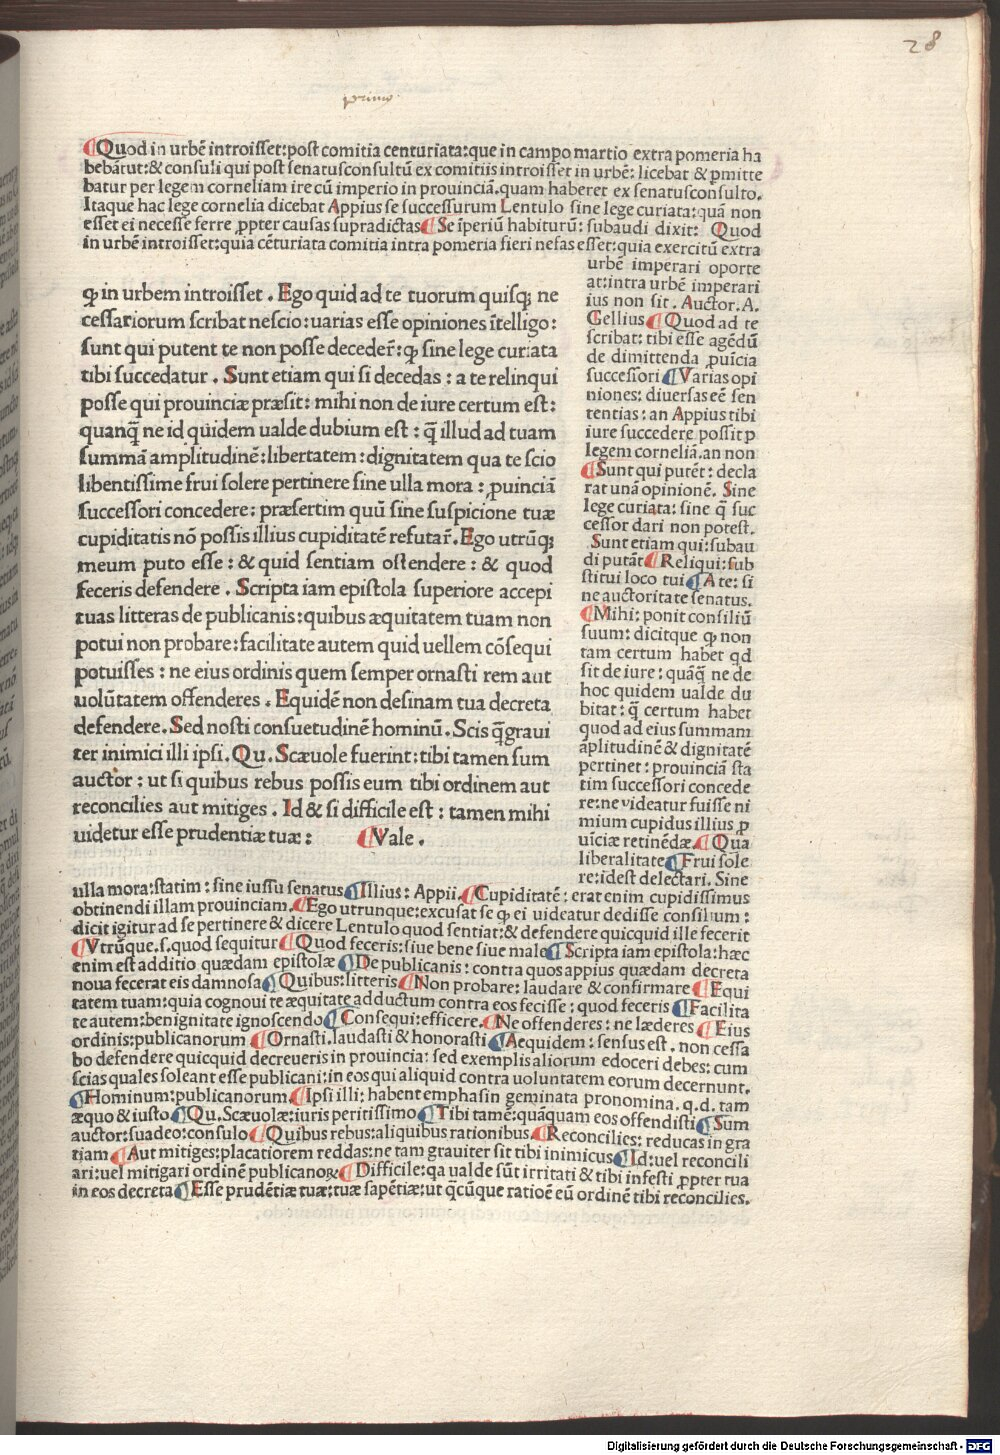 28
primo
Quod in urbē introisset: post comitia centuriata: que in campo martio extra pomeria ha
bebātur: & consuli qui post senatusconsultū ex comitiis introisset in urbē: licebat & pmitte
batur per legem corneliam ire cū imperio in prouinciā. quam haberet ex senatusconsulto.
Itaque hac lege cornelia dicebat Appius se successurum Lentulo sine lege curiata: quā non
esset ei necesse ferre ꝓpter causas supradictas ¶ Se īperiū habiturū: subaudi dixit: Quod
in urbē introisset: quia cēturiata comitia intra pomeria fieri nefas esset: quia exercitū extra
urbē imperari oporte
at: intra urbē imperari
ius non sit. Auctor. A.
Gellius ¶ Quod ad te
scribat: tibi esse agēdū
de dimittenda ꝓuīcia
successori ¶ Varias opi
niones: diuersas eē sen
tentias: an Appius tibi
iure succedere possit p
legem corneliā. an non
¶ Sunt qui putēt: decla
rat unā opinionē. Sine
lege curiata: sine q̄ suc
cessor dari non potest.
Sunt etiam qui: subau
di putāt ¶ Reliqui: sub
stitui loco tui ¶ A te: si
ne auctoritate senatus.
¶ Mihi: ponit consiliū
suum: dicitque ꝙ non
tam certum habet qd
sit de iure: quāq̄ ne de
hoc quidem ualde du
bitat: q̄ certum habet
quod ad eius summam
āplitudinē & dignitatē
pertinet: prouinciā sta
tim successori concede
re: ne videatur fuisse ni
mium cupidus illius ꝓ
uīciæ retinēdæ. ¶ Qua
liberalitate ¶ Frui sole
re: idest delectari. Sine
ꝙ in urbem introisset. Ego quid ad te tuorum quisq; ne
cessariorum scribat nescio: uarias esse opiniones ītelligo:
sunt qui putent te non posse decederē: ꝙ sine lege curiata
tibi succedatur. Sunt etiam qui si decedas: a te relinqui
posse qui prouinciæ præsit: mihi non de iure certum est:
quanq̄ ne id quidem ualde dubium est: q̄ illud ad tuam
summā amplitudinē: libertatem: dignitatem qua te scio
libentissime frui solere pertinere sine ulla mora: ꝓuinciā
successori concedere: præsertim quū sine suspicione tuæ
cupiditatis nō possis illius cupiditatē refutar̄. Ego utrūq;
meum puto esse: & quid sentiam ostendere: & quod
feceris defendere. Scripta iam epistola superiore accepi
tuas litteras de publicanis: quibus æquitatem tuam non
potui non probare: facilitate autem quid uellem cōsequi
potuisses: ne eius ordinis quem semper ornasti rem aut
uolūtatem offenderes. Equidē non desinam tua decreta
defendere. Sed nosti consuetudinē hominū. Scis q̄ graui
ter inimici illi ipsi. Qu. Scæuole fuerint: tibi tamen sum
auctor: ut si quibus rebus possis eum tibi ordinem aut
reconcilies aut mitiges. Id & si difficile est: tamen mihi
uidetur esse prudentiæ tuæ: ¶ Vale.
ulla mora: statim: sine iussu senatus ¶ Illius: Appii. ¶ Cupiditatē: erat enim cupidissimus
obtinendi illam prouinciam. ¶ Ego utrunque: excusat se ꝙ ei uideatur dedisse consilium:
dicit igitur ad se pertinere & dicere Lentulo quod sentiat: & defendere quicquid ille fecerit
¶ Vtrūque. s. quod sequitur ¶ Quod feceris: siue bene siue male ¶ Scripta iam epistola: hæc
enim est additio quædam epistolæ ¶ De publicanis: contra quos appius quædam decreta
noua fecerat eis damnosa ¶ Quibus: litteris ¶ Non probare: laudare & confirmare ¶ Equi
tatem tuam: quia cognoui te æquitate adductum contra eos fecisse: quod feceris ¶ Facilita
te autem: benignitate ignoscendo ¶ Consequi: efficere. ¶ Ne offenderes: ne læderes ¶ Eius
ordinis: publicanorum ¶ Ornasti. laudasti & honorasti ¶ Aequidem: sensus est. non cessa
bo defendere quicquid decreueris in prouincia: sed exemplis aliorum edoceri debes: cum
scias quales soleant esse publicani: in eos qui aliquid contra uoluntatem eorum decernunt.
¶ Hominum: publicanorum. ¶ Ipsi illi: habent emphasin geminata pronomina. q. d. tam
æquo & iusto ¶ Qu. Scæuolæ: iuris peritissimo ¶ Tibi tamē: quāquam eos offendisti ¶ Sum
auctor: suadeo: consulo ¶ Quibus rebus: aliquibus rationibus ¶ Reconcilies: reducas in gra
tiam ¶ Aut mitiges: placatiorem reddas: ne tam grauiter sit tibi inimicus ¶ Id: uel reconcili
ari: uel mitigari ordinē publicanoꝝ ¶ Difficile: qa ualde sūt irritati & tibi infesti ꝓpter tua
in eos decreta ¶ Esse prudētiæ tuæ: tuæ sapētiæ: ut q̄cūque ratioē eū ordinē tibi reconcilies.
Digitalisierung gefördert durch die Deutsche Forschungsgemeinschaft - DFG